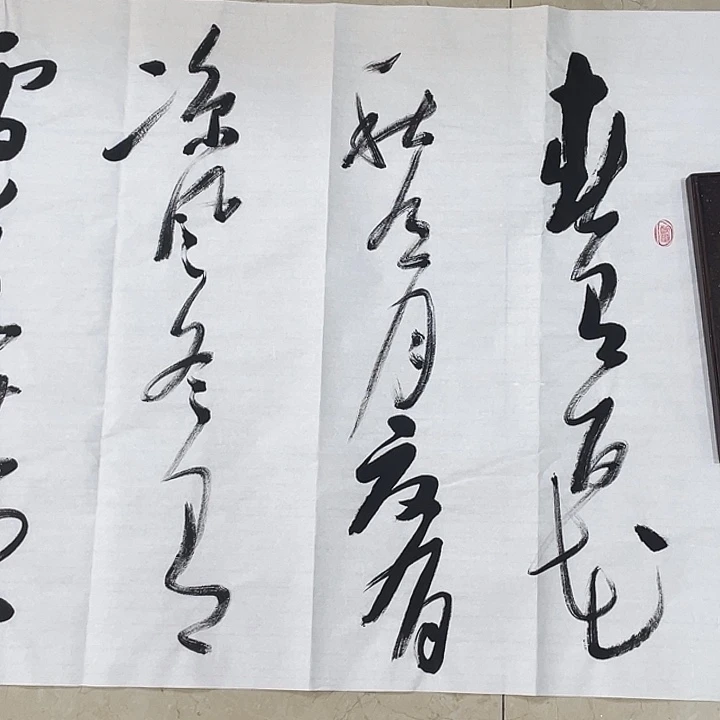 春有百花
秋有月夏有
凉风冬有
雪